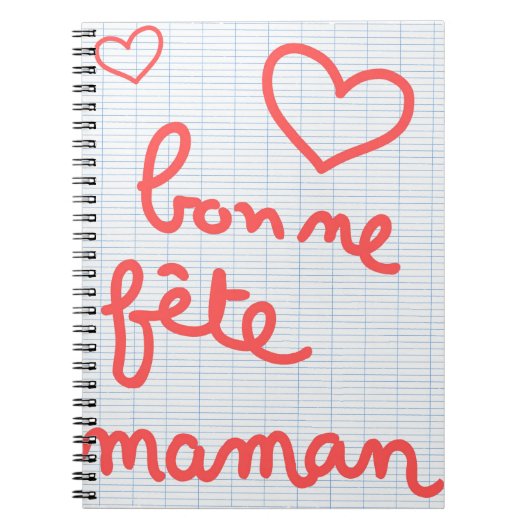 bonne
fête
maman